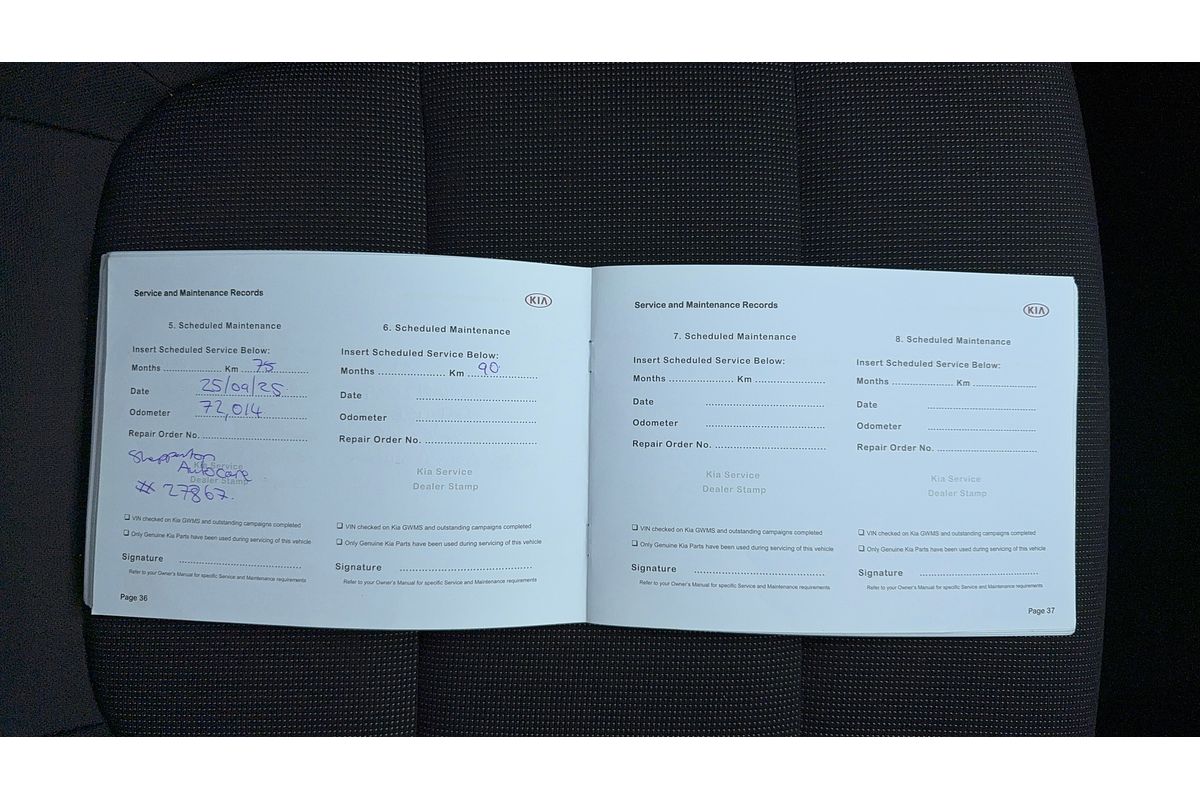 Service and Maintenance Records
KIA
5. Scheduled Maintenance
Insert Scheduled Service Below:
Months .................... Km 75
Date 25/09/25
Odometer 72,014
Repair Order No. ................................
Shepparton
Kia Service
AutoCare
Dealer Stamp
# 27867.
❑ VIN checked on Kia GWMS and outstanding campaigns completed
❑ Only Genuine Kia Parts have been used during servicing of this vehicle
Signature ................................
Refer to your Owner's Manual for specific Service and Maintenance requirements
Page 36
6. Scheduled Maintenance
Insert Scheduled Service Below:
Months .................... Km 90
Date ................................
Odometer ................................
Repair Order No. ................................
Kia Service
Dealer Stamp
❑ VIN checked on Kia GWMS and outstanding campaigns completed
❑ Only Genuine Kia Parts have been used during servicing of this vehicle
Signature ................................
Refer to your Owner's Manual for specific Service and Maintenance requirements
Service and Maintenance Records
KIA
7. Scheduled Maintenance
Insert Scheduled Service Below:
Months .................... Km ....................
Date ................................
Odometer ................................
Repair Order No. ................................
Kia Service
Dealer Stamp
❑ VIN checked on Kia GWMS and outstanding campaigns completed
❑ Only Genuine Kia Parts have been used during servicing of this vehicle
Signature ................................
Refer to your Owner's Manual for specific Service and Maintenance requirements
8. Scheduled Maintenance
Insert Scheduled Service Below:
Months .................... Km ....................
Date ................................
Odometer ................................
Repair Order No. ................................
Kia Service
Dealer Stamp
❑ VIN checked on Kia GWMS and outstanding campaigns completed
❑ Only Genuine Kia Parts have been used during servicing of this vehicle
Signature ................................
Refer to your Owner's Manual for specific Service and Maintenance requirements
Page 37